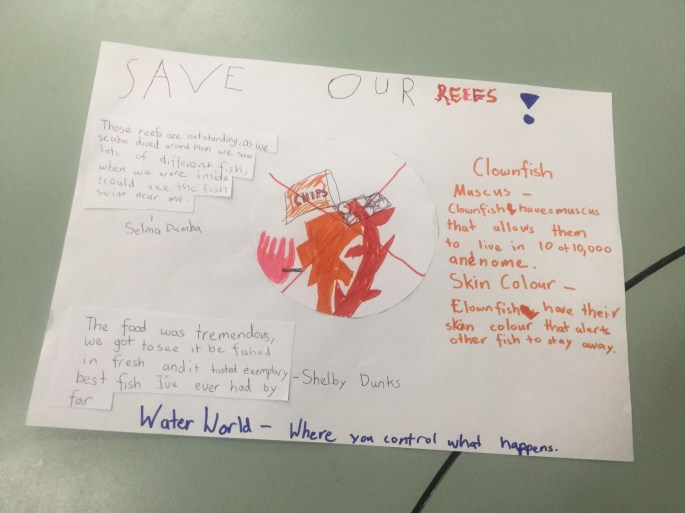 SAVE OUR REEFS!
Those reefs are outstanding, as we
scuba dived around them we saw
lots of different fish,
when we were inside
I could see the fish
swim near me.
Selma Dumba
CHIPS
The food was tremendous,
we got to see it be fished
in fresh and it tasted exemplary
best fish I've ever had by
far
-Shelby Dunks
Clownfish
Muscus -
Clownfish have a muscus
that allows them
to live in 10 of 10,000
anénome.
Skin Colour -
Clownfish have their
skin colour that alerts
other fish to stay away.
Water World - Where you control what happens.